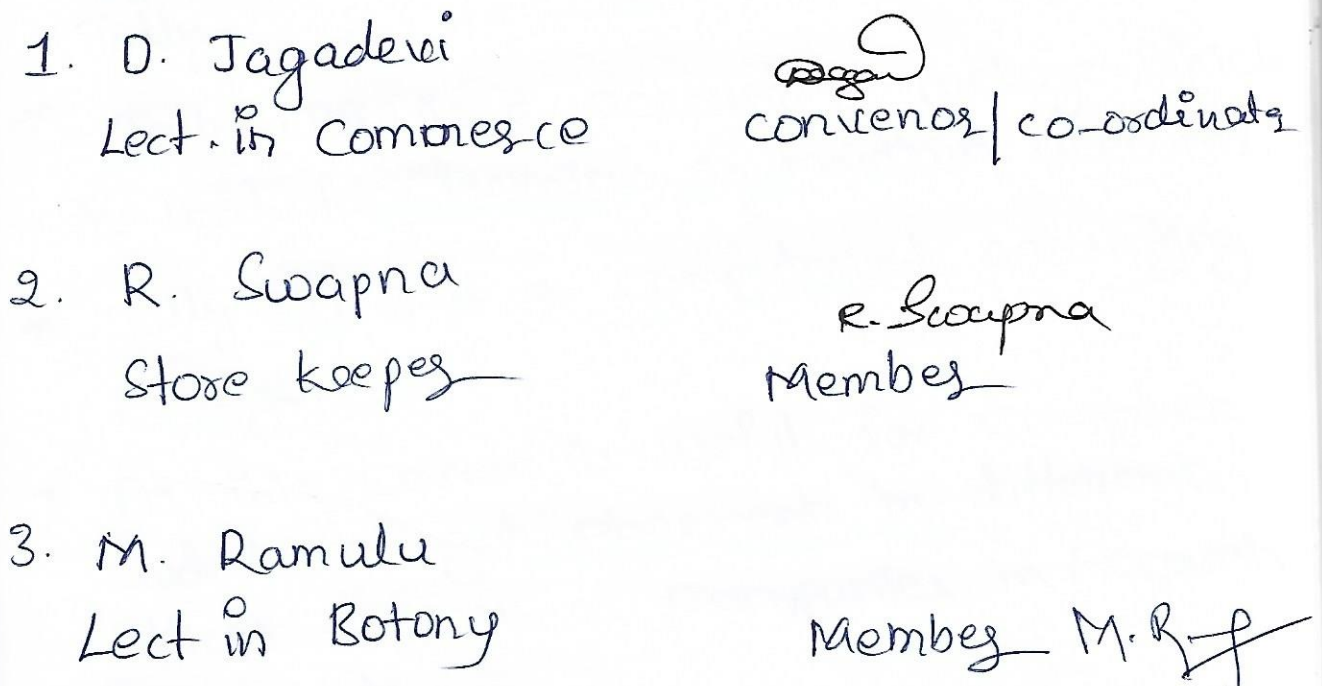 1. D. Jagadevi
Lect. in Commerce
convenor / co-ordinator
2. R. Swapna
R. Swapna
Store keeper
Member
3. M. Ramulu
Lect in Botony
Member M. R